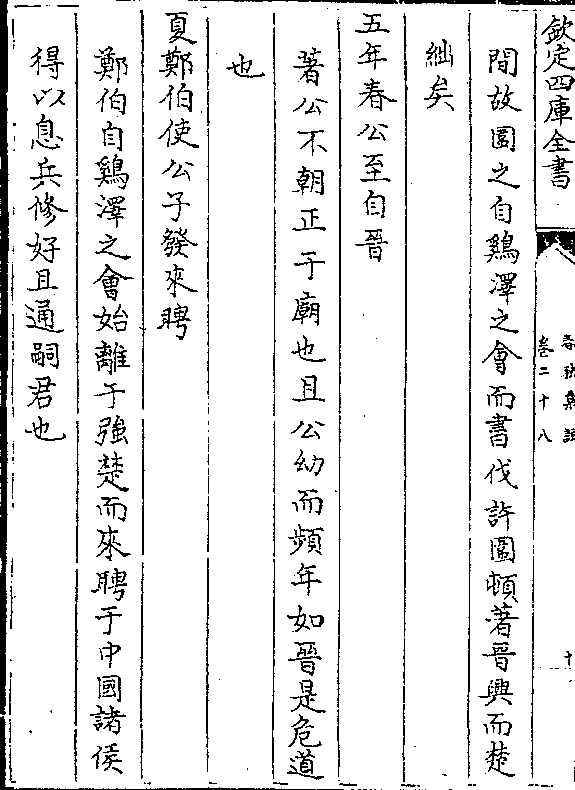 欽定四庫全書
春秋集註
卷二十八
十
間故圍之自鷄澤之會而書伐許圍頓著晉興而楚
絀矣
五年春公至自晉
著公不朝正于廟也且公幼而頻年如晉是危道
也
夏鄭伯使公子發來聘
鄭伯自鷄澤之會始離于強楚而來聘于中國諸侯
得以息兵修好且通嗣君也